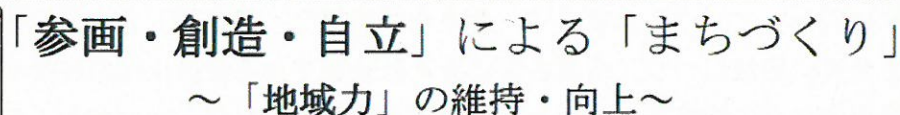 「参画・創造・自立」による「まちづくり」
～「地域力」の維持・向上～